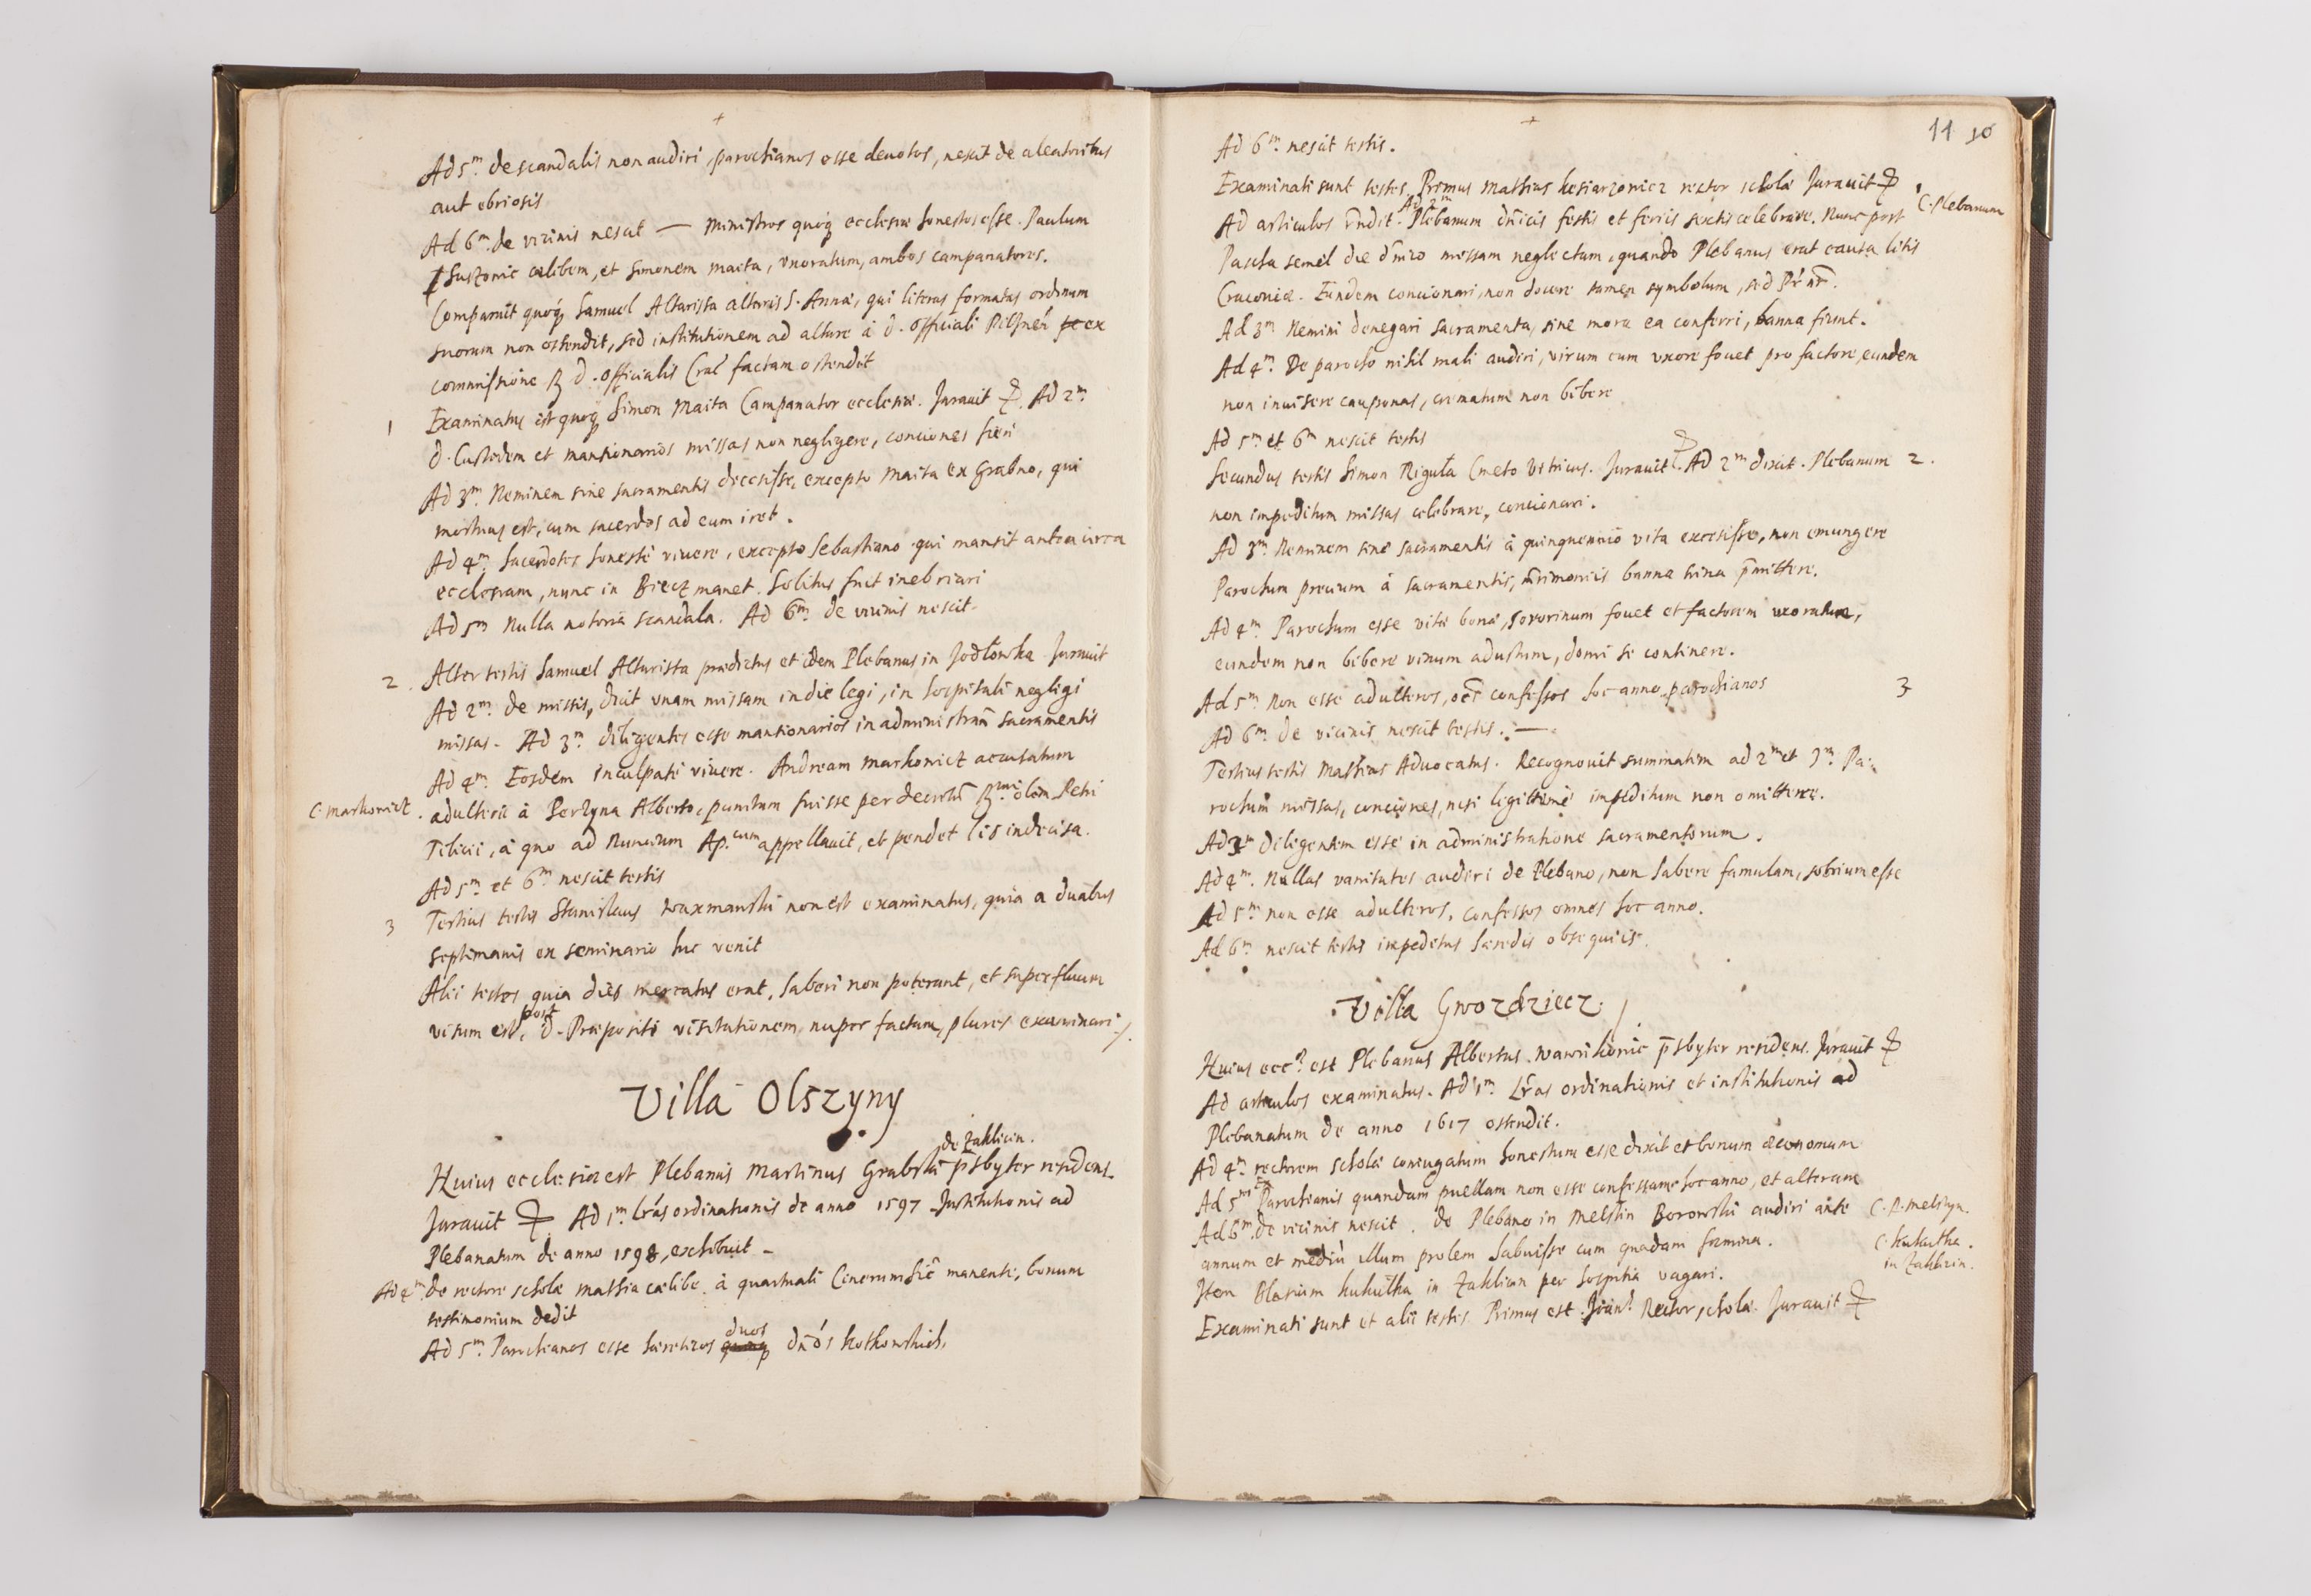 Ad 5m. de scandalis non audiri, parochianos esse deuotos, nescit de aleatoribus
aut ebriosis
Ad 6m. de vicinis nescit — Ministros quoq ecclesiæ honestos esse. Paulum
cælibem, et Simonem Maita, vxoratum, ambos campanatores.
Comparuit quoq, Samuel Altarista altaris S. Annæ, qui literas formatas ordinum
suorum non ostendit, sed institutionem ad altare à d. officiali Pilsneń ex
commissione R d. officialis Crał factam ostendit
1 Examinatus est quoq Simon Maita Campanator ecclesiæ. Jurauit. Ad 2m
d. Custodem et mansionarios missas non negligere, conciones fieri
Ad 3m. Neminem sine sacramentis decessisse, excepto Maita ex Grabno, qui
mortuus est, cum sacerdos ad eum iret.
Ad 4m. Sacerdotes honestè viuere, excepto Sebastiano qui mansit antea circa
ecclesiam, nunc in Biecz manet. Solitus fuit inebriari
Ad 5m Nulla notoria scandala. Ad 6m. de vicinis nescit.
2. Alter testis Samuel Altarista prædictus et idem Plebanus in Jodłowka Jurauit
Ad 2m. de missis, dicit vnam missam in die legi, in hospitali negligi
missas. Ad 3m. diligentes esse mansionarios in administrań sacramentis
Ad 4m. Eosdem inculpatè viuere. Andream Markowicz accusatum
C. Markowicz. adulterii à Perzyna Alberto, punitum fuisse per decretū Rmi olim Petri
Tilicii, à quo ad Nuncium Ap.cum appellauit, et pendet lis indecisa.
Ad 5m. et 6m nescit testis
3 Tertius testis Stanislaus Waxmanski non est examinatus, quia a duabus
septimanis ex seminario huc venit
Alii testes quia dies mercatus erat, haberi non poterant, et superfluum
visum est, post d. Præpositi visitationem nuper factam, plures examinari.
Villa Olszyny
de Zakliczin.
Huius ecclesiæ est Plebanus Martinus Grabski p̄sbyter residens.
Jurauit Ad 1m. lr̄as ordinationis de anno 1597 Institutionis ad
Plebanatum de anno 1598, exhibuit -
Ad 4m. de rectore scholæ Mathia cælibe. à quartuali Cinerum hic manente, bonum
testimonium dedit
Ad 5m. Parochianos esse hæreticos duos dn̄os Rotkowskich.
11 10
Ad 6m. nescit testis.
Examinati sunt testes. Primus Mathias rector scholæ Jurauit
Ad 2m
Ad articulos rn̄dit. Plebanum dn̄icis festis et feriis sextis celebrare. Nunc post C. Plebanum
Pascha semel die dn̄ico missam neglectam, quando Plebanus erat causa litis
Cracouiæ. Eundem concionari, non docere tamen symbolum, sed Pr̄ nr̄.
Ad 3m Nemini denegari sacramenta, sine mora ea conferri, banna fiunt.
Ad 4m. De parocho nihil mali audiri, virum cum vxore fouet pro factore, eundem
non inuisere cauponas, crematum non bibere
Ad 5m et 6m nescit testis
Secundus testis Simon Riguła Cmeto Vitricus. Jurauit. Ad 2m dicit. Plebanum 2.
non impeditum missas celebrare, concionari.
Ad 3m. Neminem sine sacramentis à quinquennio vita excessisse, non emungere
Parochum precium à sacramentis, mr̄imoniis banna trina p̄mittere.
Ad 4m. Parochum esse vitæ bonæ, sororinum fouet et factorem vxoratum,
eundem non bibere vinum adustum, domi se continere.
Ad 5m. Non esse adulteros, oēs confessos hoc anno parochianos 3
Ad 6m. de vicinis nescit testis. —
Tertius testis Mathias Aduocatus. Recognouit summatim ad 2m et 3m. Pa-
rochum missas, conciones, nisi legittimè impeditum non omittere.
Ad 3m diligentem esse in administratione sacramentorum.
Ad 4m. Nullas vanitates audiri de Plebano, non habere famulam, sobrium esse
Ad 5m. non esse adulteros, confessos omnes hoc anno.
Ad 6m. nescit testis impeditus hæredis obsequiis.
Villa Gwozdziecz.
Huius eccł est Plebanus Albertus p̄sbyter residens. Jurauit
Ad articulos examinatus. Ad 1m. Lr̄as ordinationis et institutionis ad
Plebanatum de anno 1617 ostendit.
Ad 4m. rectorem scholæ coniugatum honestum esse dixit et bonum œconomum
Ad 5m. Ex Parochianis quandam puellam non esse confessam hoc anno, et alteram
Ad 6m. de vicinis nescit. de Plebano in Melstin Borowski audiri ante C. P. Melstyn.
annum et mediū illum prolem habuisse cum quadam fœmina. C. Kukułka.
Item Blasium Kukułka in Zakliczin per hospitia vagari. in Zakliczin.
Examinati sunt et alii testes. Primus est Rector scholæ. Jurauit